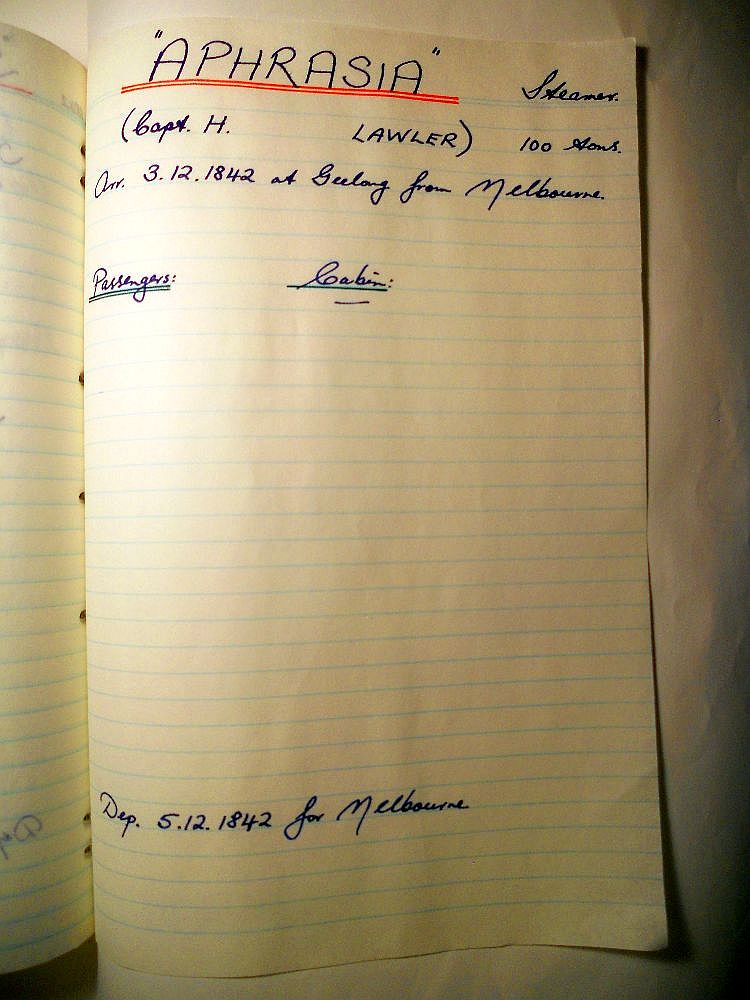 "APHRASIA" Steamer.
(Capt. H. LAWLER) 100 tons.
Arr. 3.12.1842 at Geelong from Melbourne.
Passengers: Cabin:
—
Dep. 5.12.1842 for Melbourne